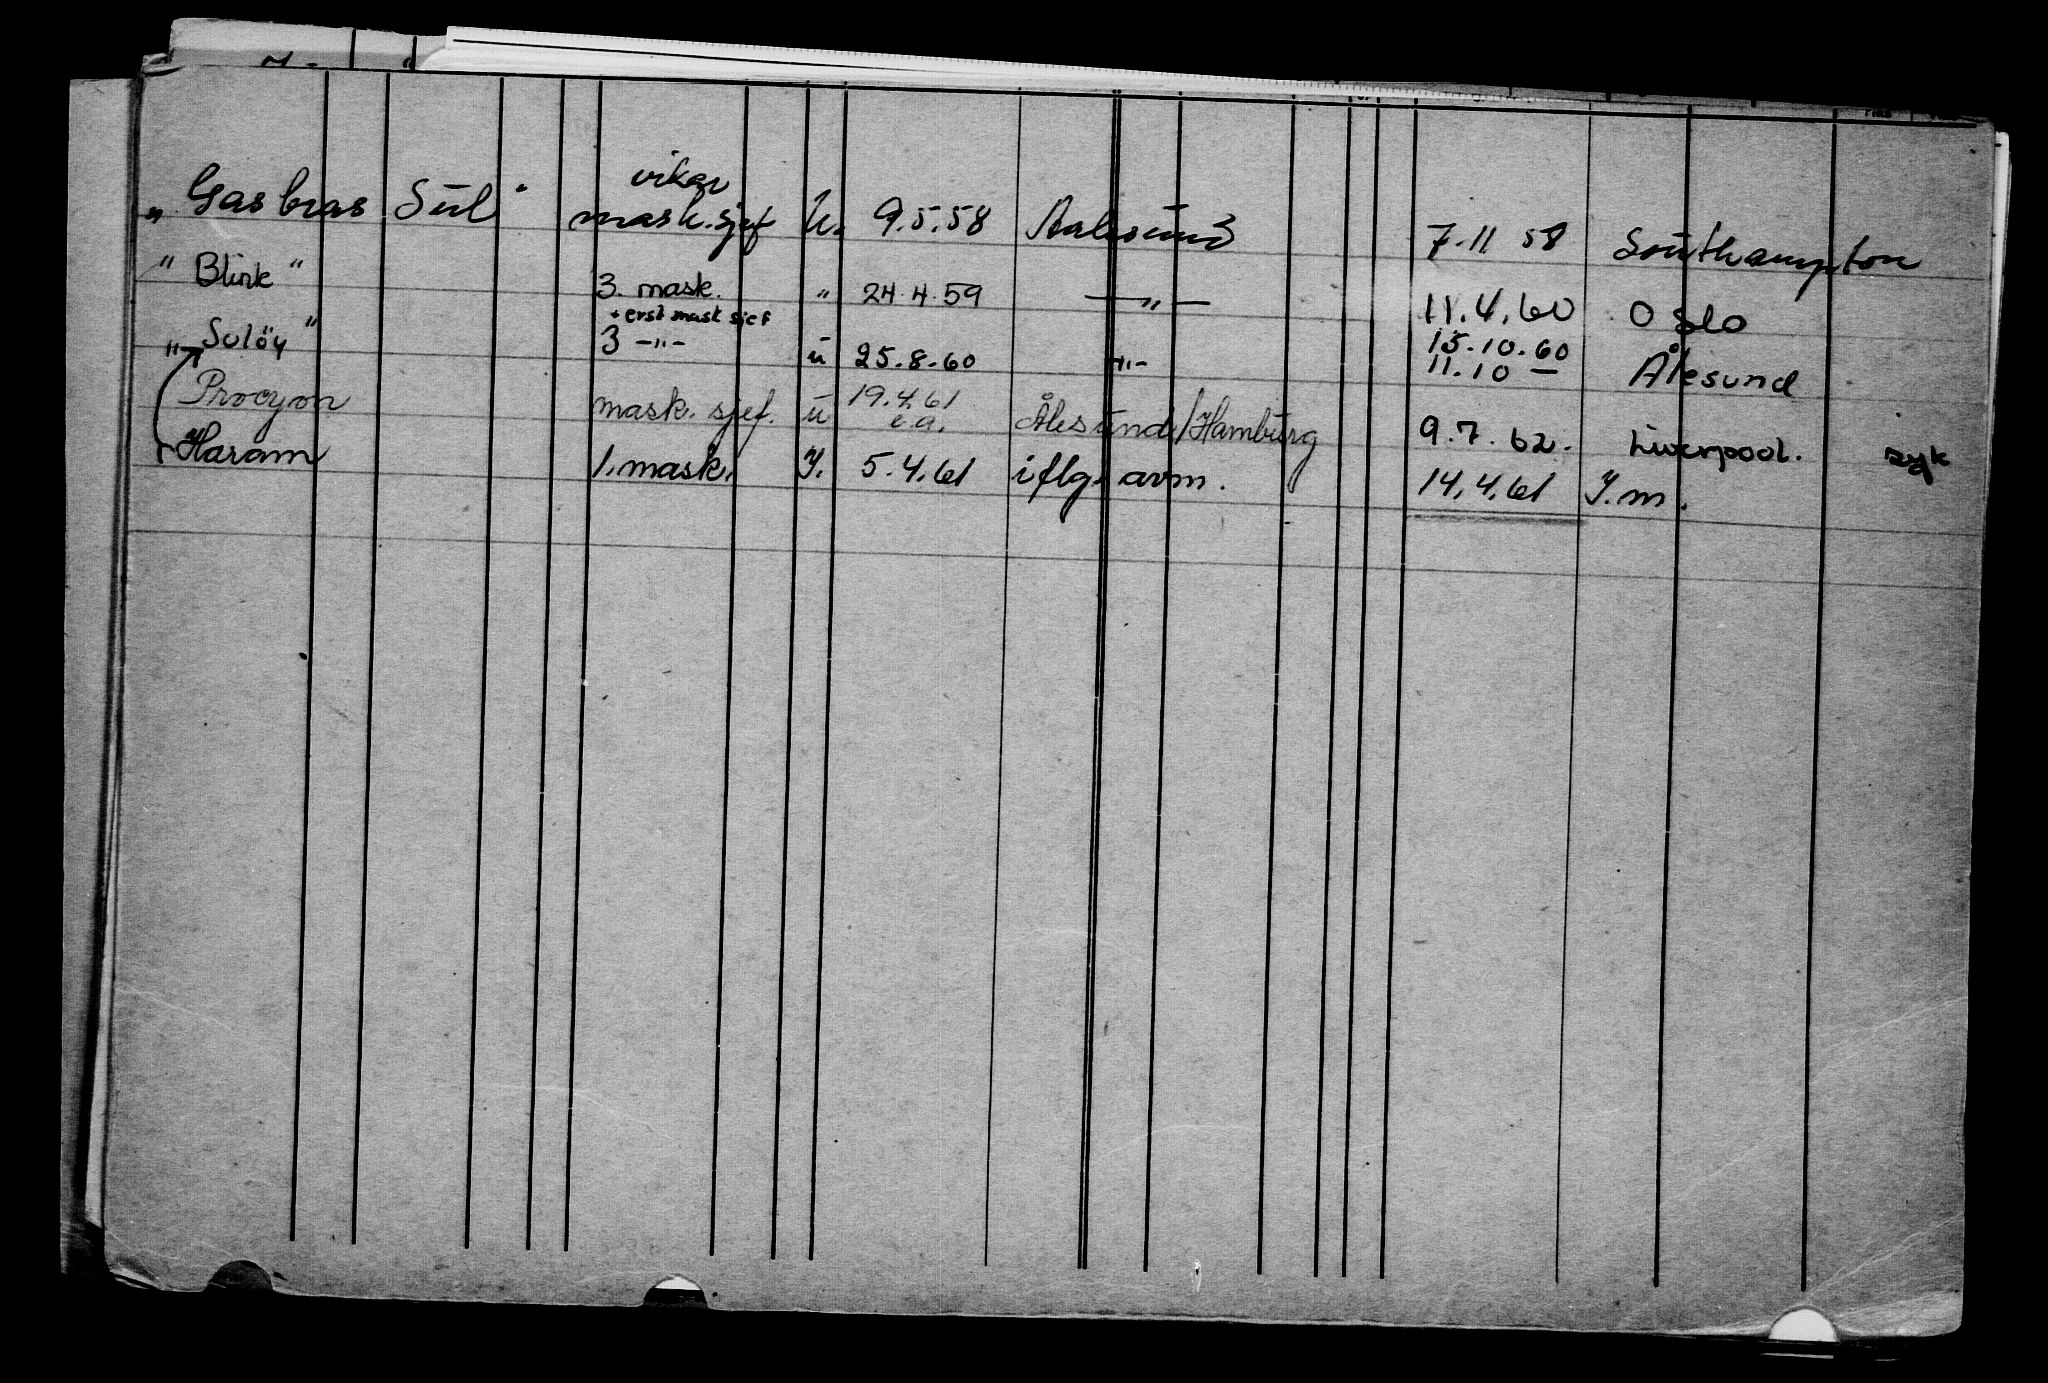 „Gasbras Sül" vikar mask.sjef U. 9.5.58 Aalesünd 7.11 58 Southampton
"Blink" 3. mask. " 24.4.59 —"— 11.4.60 Oslo
+ erst mask sjef 15.10.60
„Sulöy" 3 -"- ü 25.8.60 -"- 11.10 — Ålesund
Procyon mask. sjef. ü 19.4.61 e.a. Ålesünd/Hambürg 9.7.62. Liverpool. syk
Haram 1.mask. Y. 5.4.61 iflg. avm. 14.4.61 Y.m.